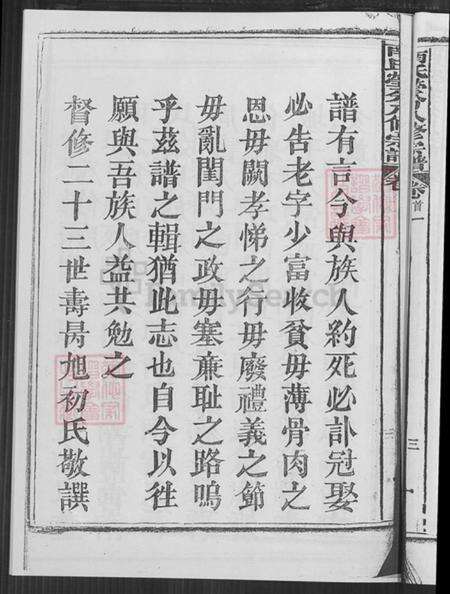 譜有言今與族人約死必訃冠娶
必告老字少富收貧毋薄骨肉之
恩毋闕孝悌之行毋廢禮義之節
毋亂閨門之政毋塞亷耻之路嗚
乎茲譜之輯猶此志也自今以徃
願與吾族人益共勉之
督修二十三世壽昺旭初氏敬譔
FamilySearch